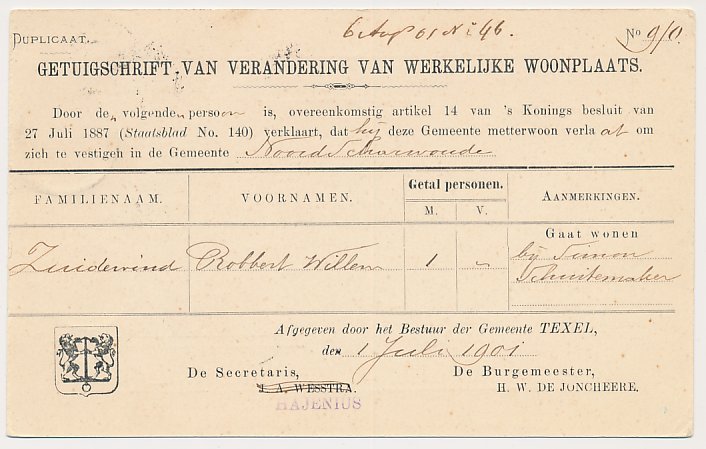 DUPLICAAT.
6 Aug 01 No 46.
No 9/0.
GETUIGSCHRIFT VAN VERANDERING VAN WERKELIJKE WOONPLAATS.
Door de volgende persoon is, overeenkomstig artikel 14 van 's Konings besluit van
27 Juli 1887 (Staatsblad No. 140) verklaart, dat hij deze Gemeente metterwoon verlaat om
zich te vestigen in de Gemeente Noord Scharwoude
FAMILIENAAM. VOORNAMEN. Getal personen. AANMERKINGEN.
M. V.
Gaat wonen
Zuidewind Robbert Willem 1 - bij Simon
Schuitemaker
Afgegeven door het Bestuur der Gemeente TEXEL,
den 1 Juli 1901
De Secretaris, De Burgemeester,
J. A. WESSTRA H. W. DE JONCHEERE.
HAJENIUS